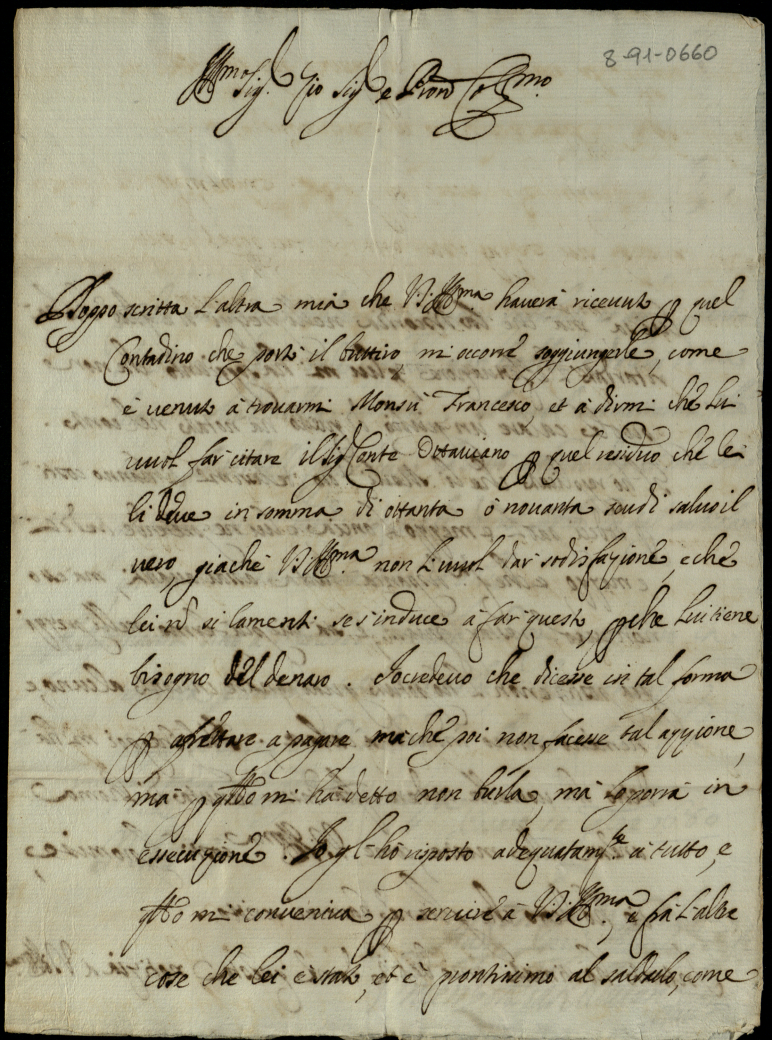 8-91-0660
Ill.mo Sig. Sig. e Pron Col.mo
Doppo scritta l'altra mia che V.S. Ill.ma haverà ricevuto p quel
Contadino che portò il buttiro, mi occorre soggiungerle, come
è venuto à trovarmi Monsù Francesco, et à dirmi che lui
vuol far citare il Sig Conte Ottaviano p quel residuo che lei
li deve in somma di ottanta ò novanta scudi salvo il
vero, giache V.S. Ill.ma non l'vuol dar sodisfazione, e che
lei nõ si lamenti se s'induce à far questo, pche lui tiene
bisogno del denaro. Io credevo che dicesse in tal forma
p afrettare a pagare, ma che poi non facesse tal azzione,
mà p qto mi hà detto non burla, mà la porrà in
essecuzione. Io gl'hò risposto adequatam.te à tutto, e
qto mi conveniva p servire à V.S. Ill.ma, e frà l'altre
cose che lei è stato, et è prontissimo al saldarlo, come